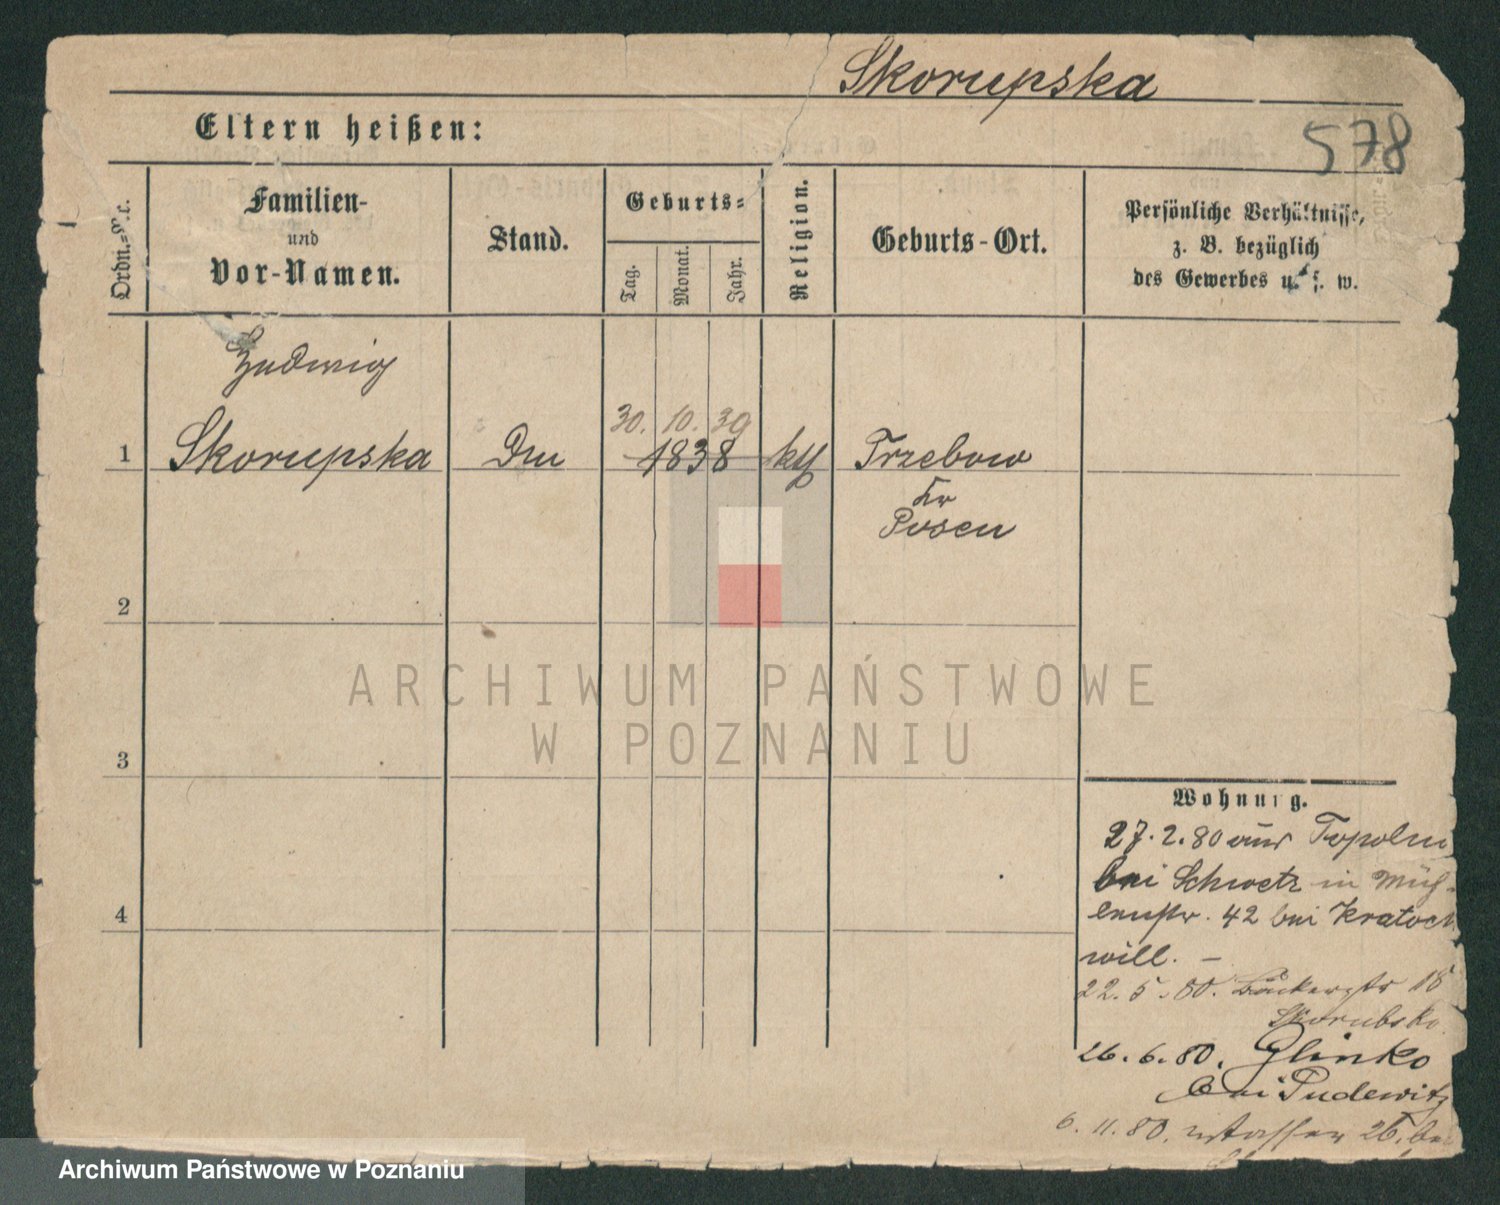 Skorupska
578
Eltern heißen:
Ordn.-Nr.
Familien-
und
Vor-Namen.
Stand.
Geburts-
Tag.
Monat.
Jahr.
Religion.
Geburts-Ort.
Persönliche Verhältnisse,
z. B. bezüglich
des Gewerbes u. s. w.
Hedwig
30. 10. 39
1 Skorupska 1838 kth Trzebow
Kr
Posen
2
3
4
ARCHIWUM PAŃSTWOWE
W POZNANIU
Wohnung.
27.2.80 aus Topolno
bei Schwetz in Müh-
lenstr. 42 bei Kratoch
will. -
22.5.80. Bäckerstr 18
Skorubska
26.6.80. Glinko
bei Pudewitz
6.11.80. 26. bei
Archiwum Państwowe w Poznaniu